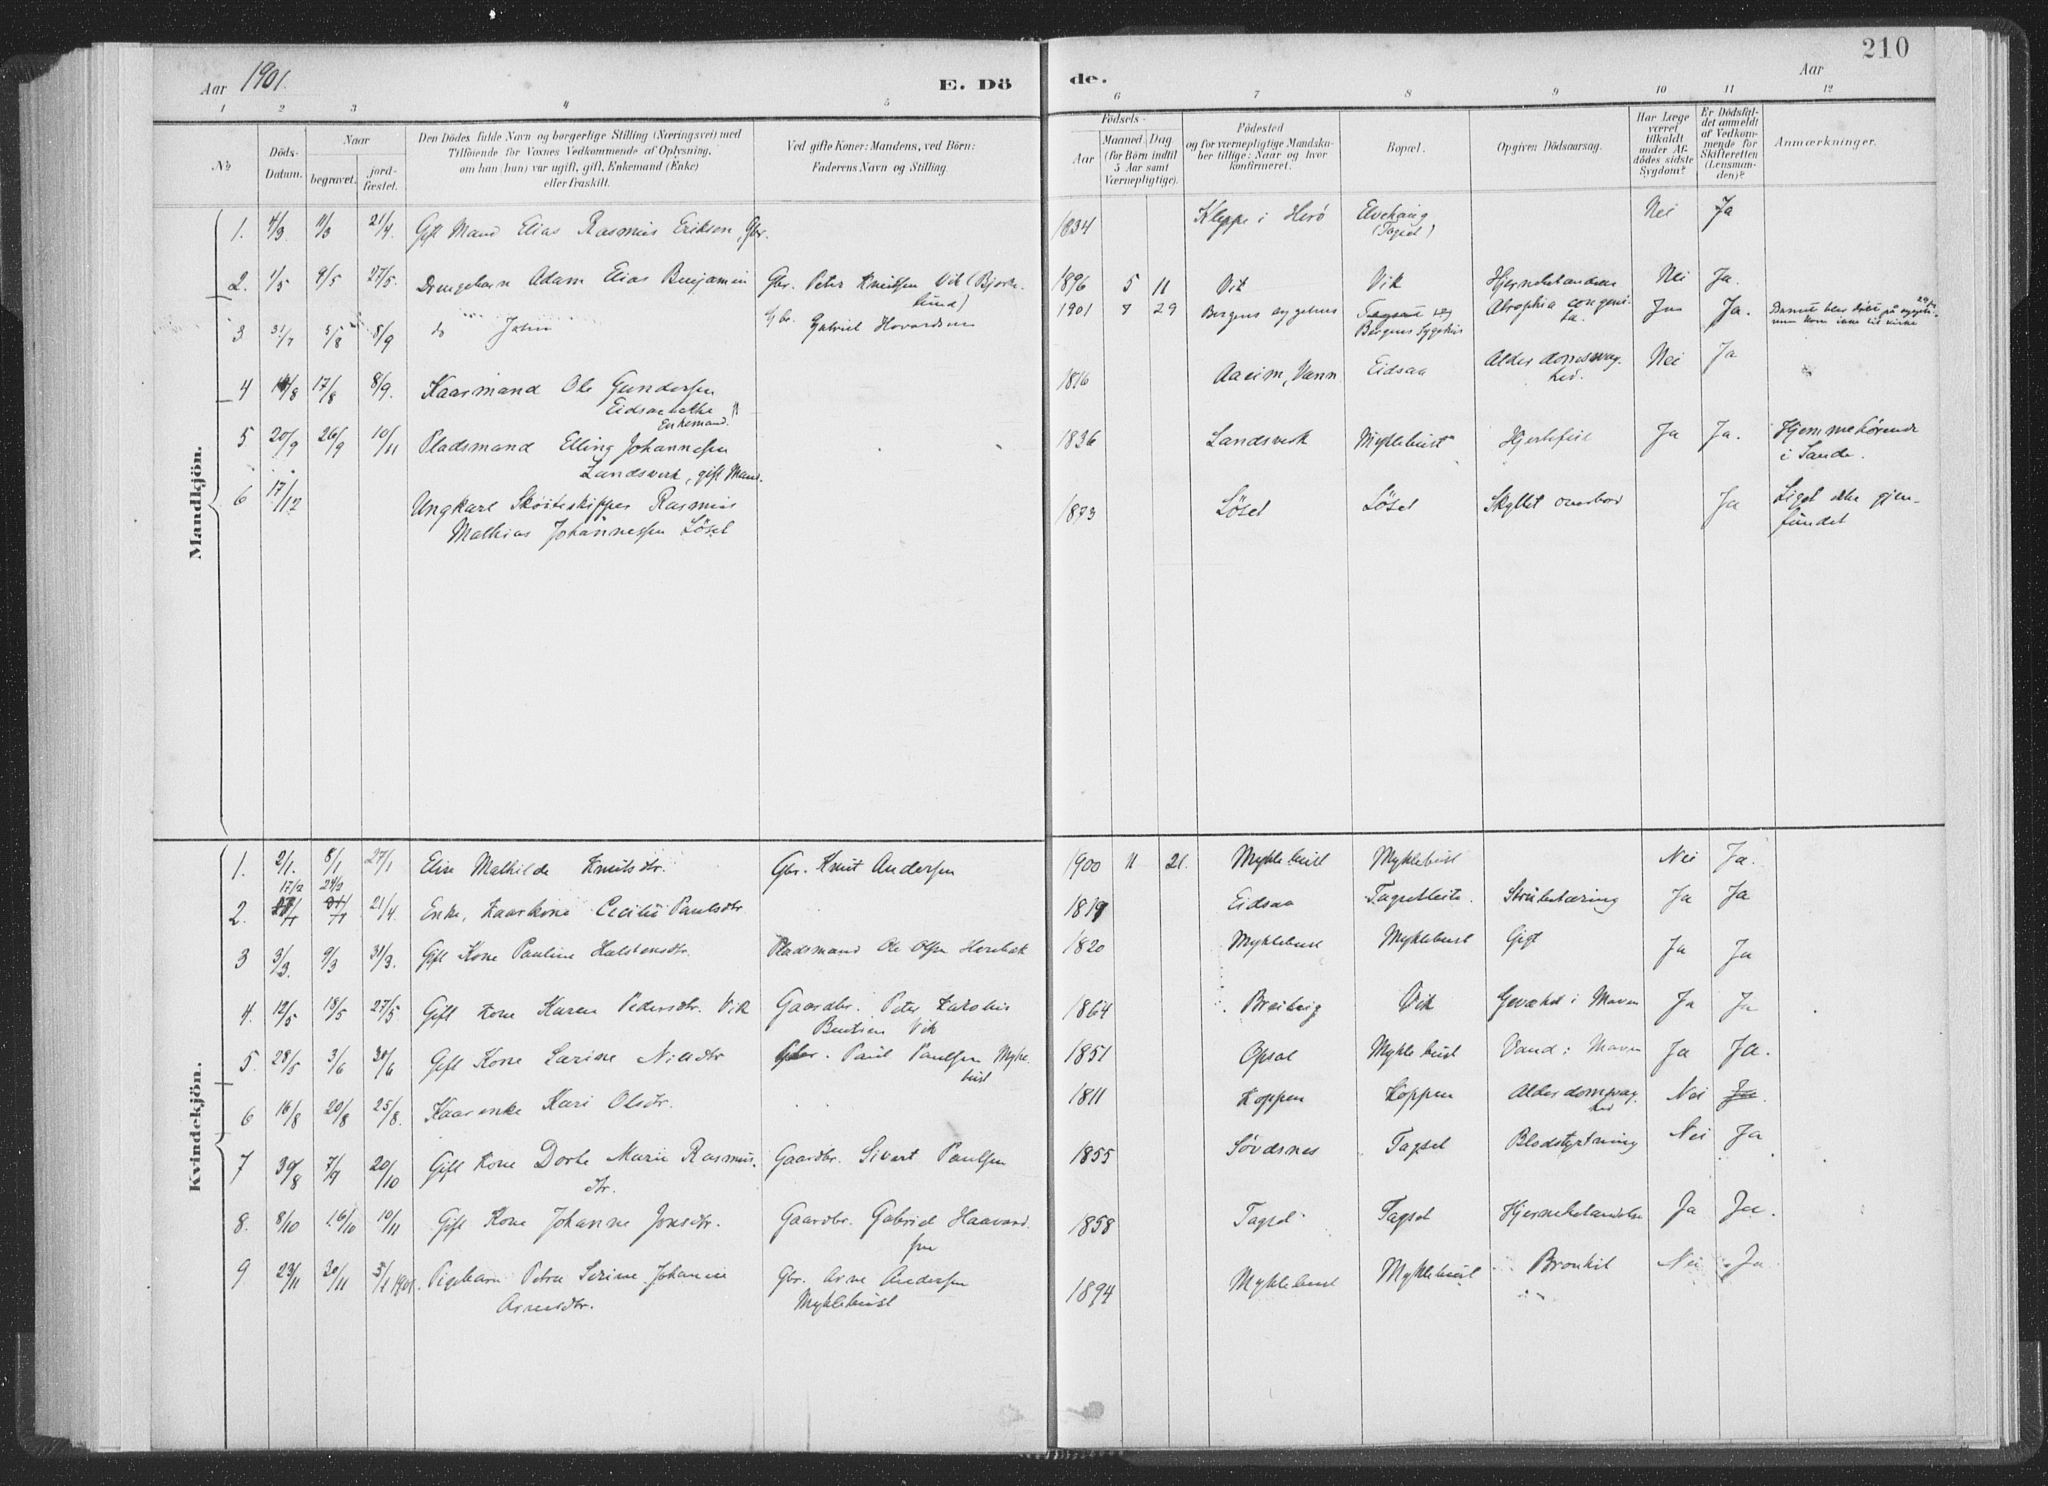 210
Aar 1901.
E. Dö
de.
Aar
1 2 3 4 5 6 7 8 9 10 11 12
No
Döds-
Datum.
Naar
begravet.
jord-
fæstet.
Den Dödes fulde Navn og borgerlige Stilling (Næringsvei) med
Tilföiende for Voxnes Vedkommende af Oplysning,
om han (hun) var ugift, gift, Enkemand (Enke)
eller fraskilt.
Ved gifte Koner: Mandens, ved Börn:
Faderens Navn og Stilling.
Födsels-
Aar
Maaned Dag
(for Börn indtil
5 Aar samt
Værnepligtige).
Födested
og for værnepligtige Mandska-
ber tillige: Naar og hvor
konfirmeret.
Bopæl.
Opgiven Dödsaarsag.
Har Læge
været
tilkaldt
under Af-
dödes sidste
Sygdom?
Er Dödsfal-
det anmeldt
af Vedkom-
mende for
Skifteretten
(Lensman-
den)?
Anmærkninger.
Mandkjön.
1. 4/3 11/3 21/4. Gift Mand Elias Rasmus Eriksen, Gbr. 1834 Kleppe i Herö Elvehaug (Tagset) Nei Ja
2. 1/5 9/5 27/5. Drengebarn Adam Elias Benjamin Gbr. Peter Knudsen Vik (Bjørke-
lund) 1896 5 11 Vik Vik Hjernebetændelse Nei Ja.
3 31/7 5/8 8/9 do John Gbr. Gabriel Hovardsen 1901 7 29 Bergens sygehus Bergens Sygehus Atrophia congeni-
ta. Ja Ja.
4 14/8 17/8 8/9. Kaarmand Ole Gundersen
Eidsaa
Enkemand. 1816 Aaeim, Vann Eidsaa Alderdomssvag-
hed. Nei Ja
5 20/9 26/9 10/11 Pladsmand Elling Johannessen
Landsverk, gift Mand. 1836 Landsverk Myklebust Hjertefeil Ja Ja. Hjemmehørende
i Sande.
6 17/12 Ungkarl Skøiteskipper Rasmus
Mathias Johannessen Løset 1873 Løset Løset Skyllet overbord Ja Liget ikke gjen-
fundet
Kvindekjön.
1. 2/1. 8/1 27/1 Elise Mathilde Knutsdtr. Gbr. Knut Andersen 1900 11 21. Myklebust Myklebust Nei Ja.
2. 17/2 24/2 21/4. Enke, Kaarkone Cecilie Paulsdtr 1819 Eidsaa Strubetæring Ja Ja
3 3/3. 9/3 31/3. Gift Kone Pauline Halstensdtr. Pladsmand Ole Olsen 1820 Myklebust Myklebust Gigt Ja Ja
4. 12/5 18/5 27/5 Gift Kone Karen Pedersdtr. Vik Gaardbr. Peter Jakobus
Bentsen Vik 1864 Breivig Vik Gevækst i Maven Ja Ja
5. 28/5 3/6 30/6 Gift Kone Larine Nilsdtr Gbr. Paul Paulsen Mykle-
bust 1851 Opsal Myklebust Vand i Maven Ja Ja.
6 16/8 20/8 25/8. Kaarenke Kari Olsdtr. 1811 Koppen Koppen Alderdomssvag-
hed Nei Ja.
7 30/8 7/9 20/10 Gift Kone Dorte Marie Rasmus-
dtr. Gaardbr. Sivert Paulsen 1855 Søvdsnes Tagset Blodstyrtning Nei Ja
8. 8/10 16/10 10/11 Gift Kone Johanne Jonsdtr. Gaardbr. Gabriel Haavard-
sen 1858 Tagset Tagset Hjernebetændelse Ja Ja.
9 23/11 30/11 5/1 Pigebarn Petra Serine Johanne
Arnesdtr. Gbr. Arne Andersen
Myklebust 1894 Myklebust Myklebust Bronkit Nei Ja